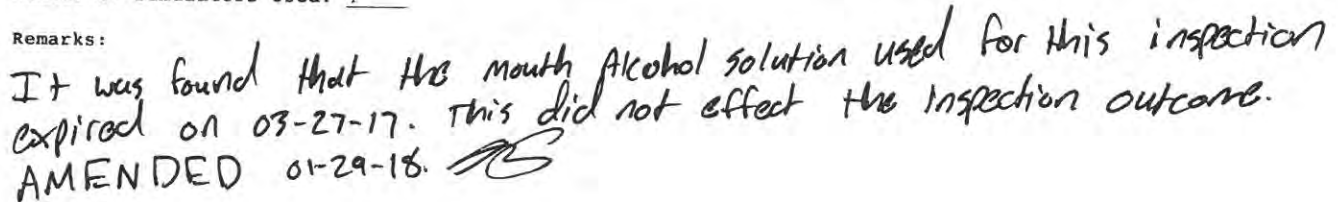 Remarks:
It was found that the mouth Alcohol solution used for this inspection
expired on 03-27-17. This did not effect the inspection outcome.
AMENDED 01-29-18.